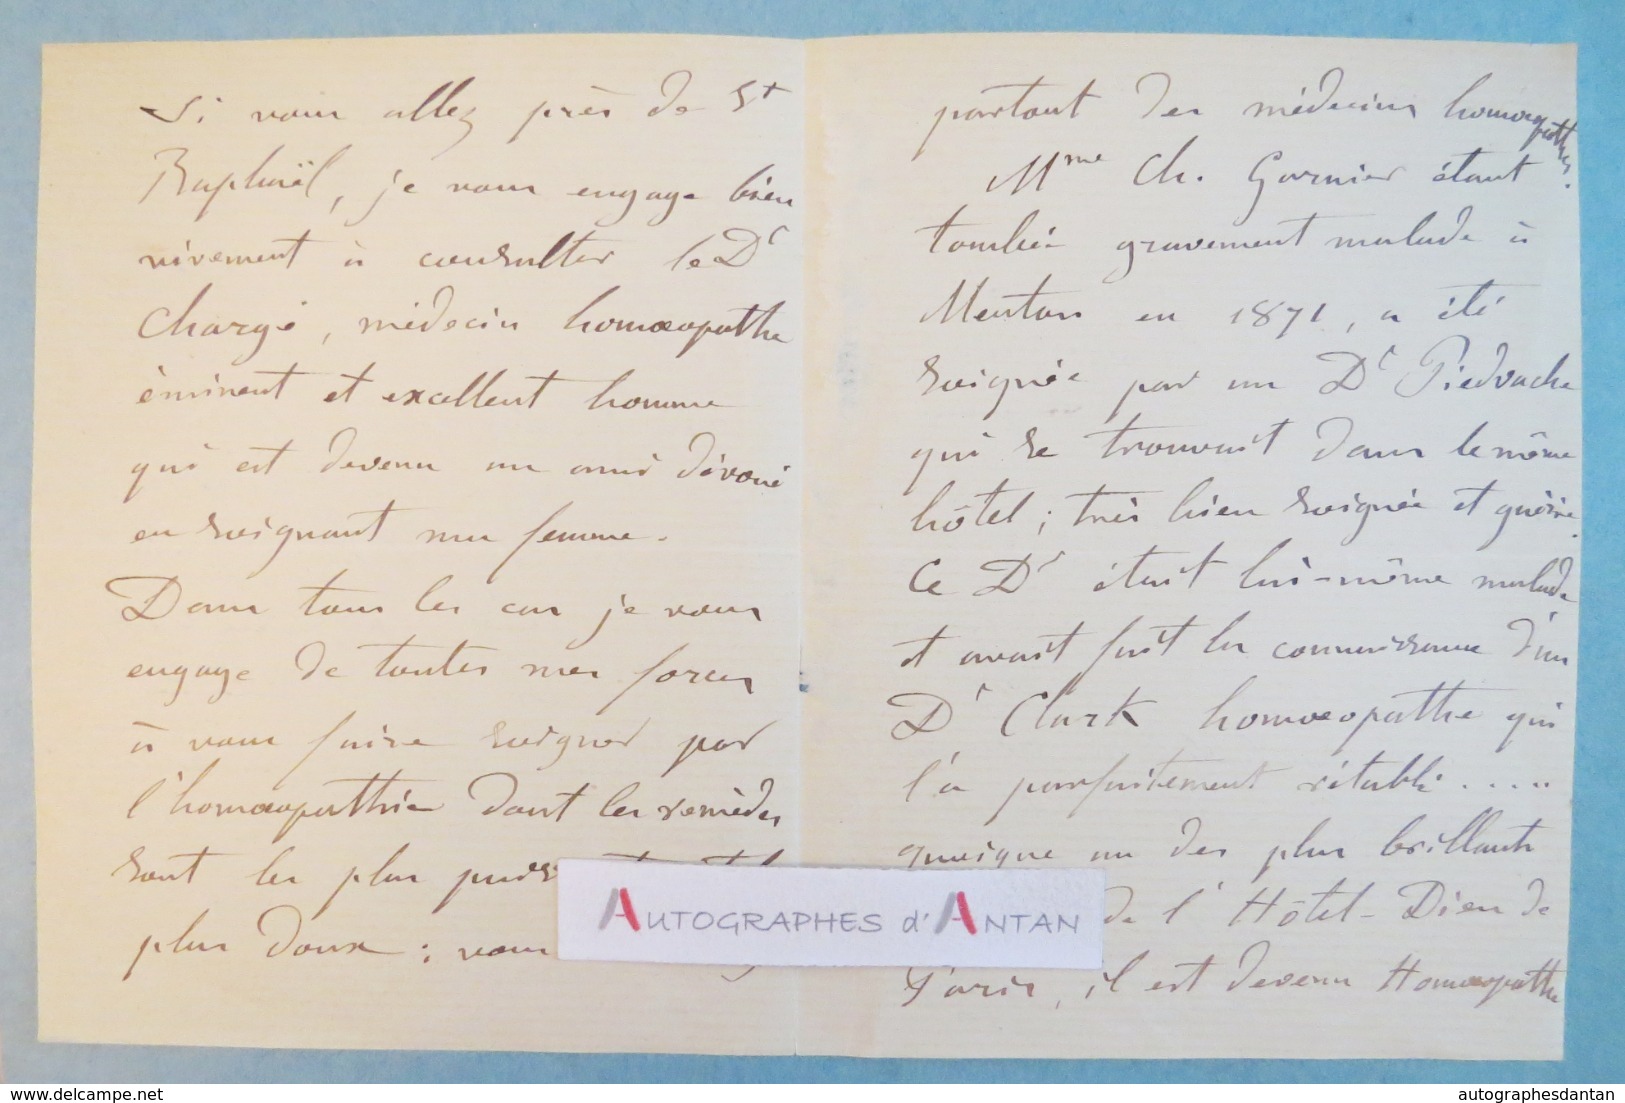 Si vous allez près de St
Raphaël, je vous engage bien
vivement à consulter le Dr
Chargé, médecin homœopathe
éminent et excellent homme
qui est devenu un ami dévoué
en soignant ma femme.
Dans tous les cas je vous
engage de toutes mes forces
à vous faire soigner par
l'homœopathie dont les remèdes
sont les plus
plus doux : vous
partout des médecins homœopathes.
Mme Ch. Garnier étant
tombée gravement malade à
Menton en 1871, a été
soignée par un Dr Piedvache
qui se trouvait dans le même
hôtel ; très bien soignée et guérie.
Ce Dr était lui-même malade
et avait fait la connaissance d'un
Dr Clark homœopathe qui
l'a parfaitement rétabli .....
quoique un des plus brillants
de l'Hôtel-Dieu de
Paris, il est devenu Homœopathe
AUTOGRAPHES d'ANTAN
autographesdantan